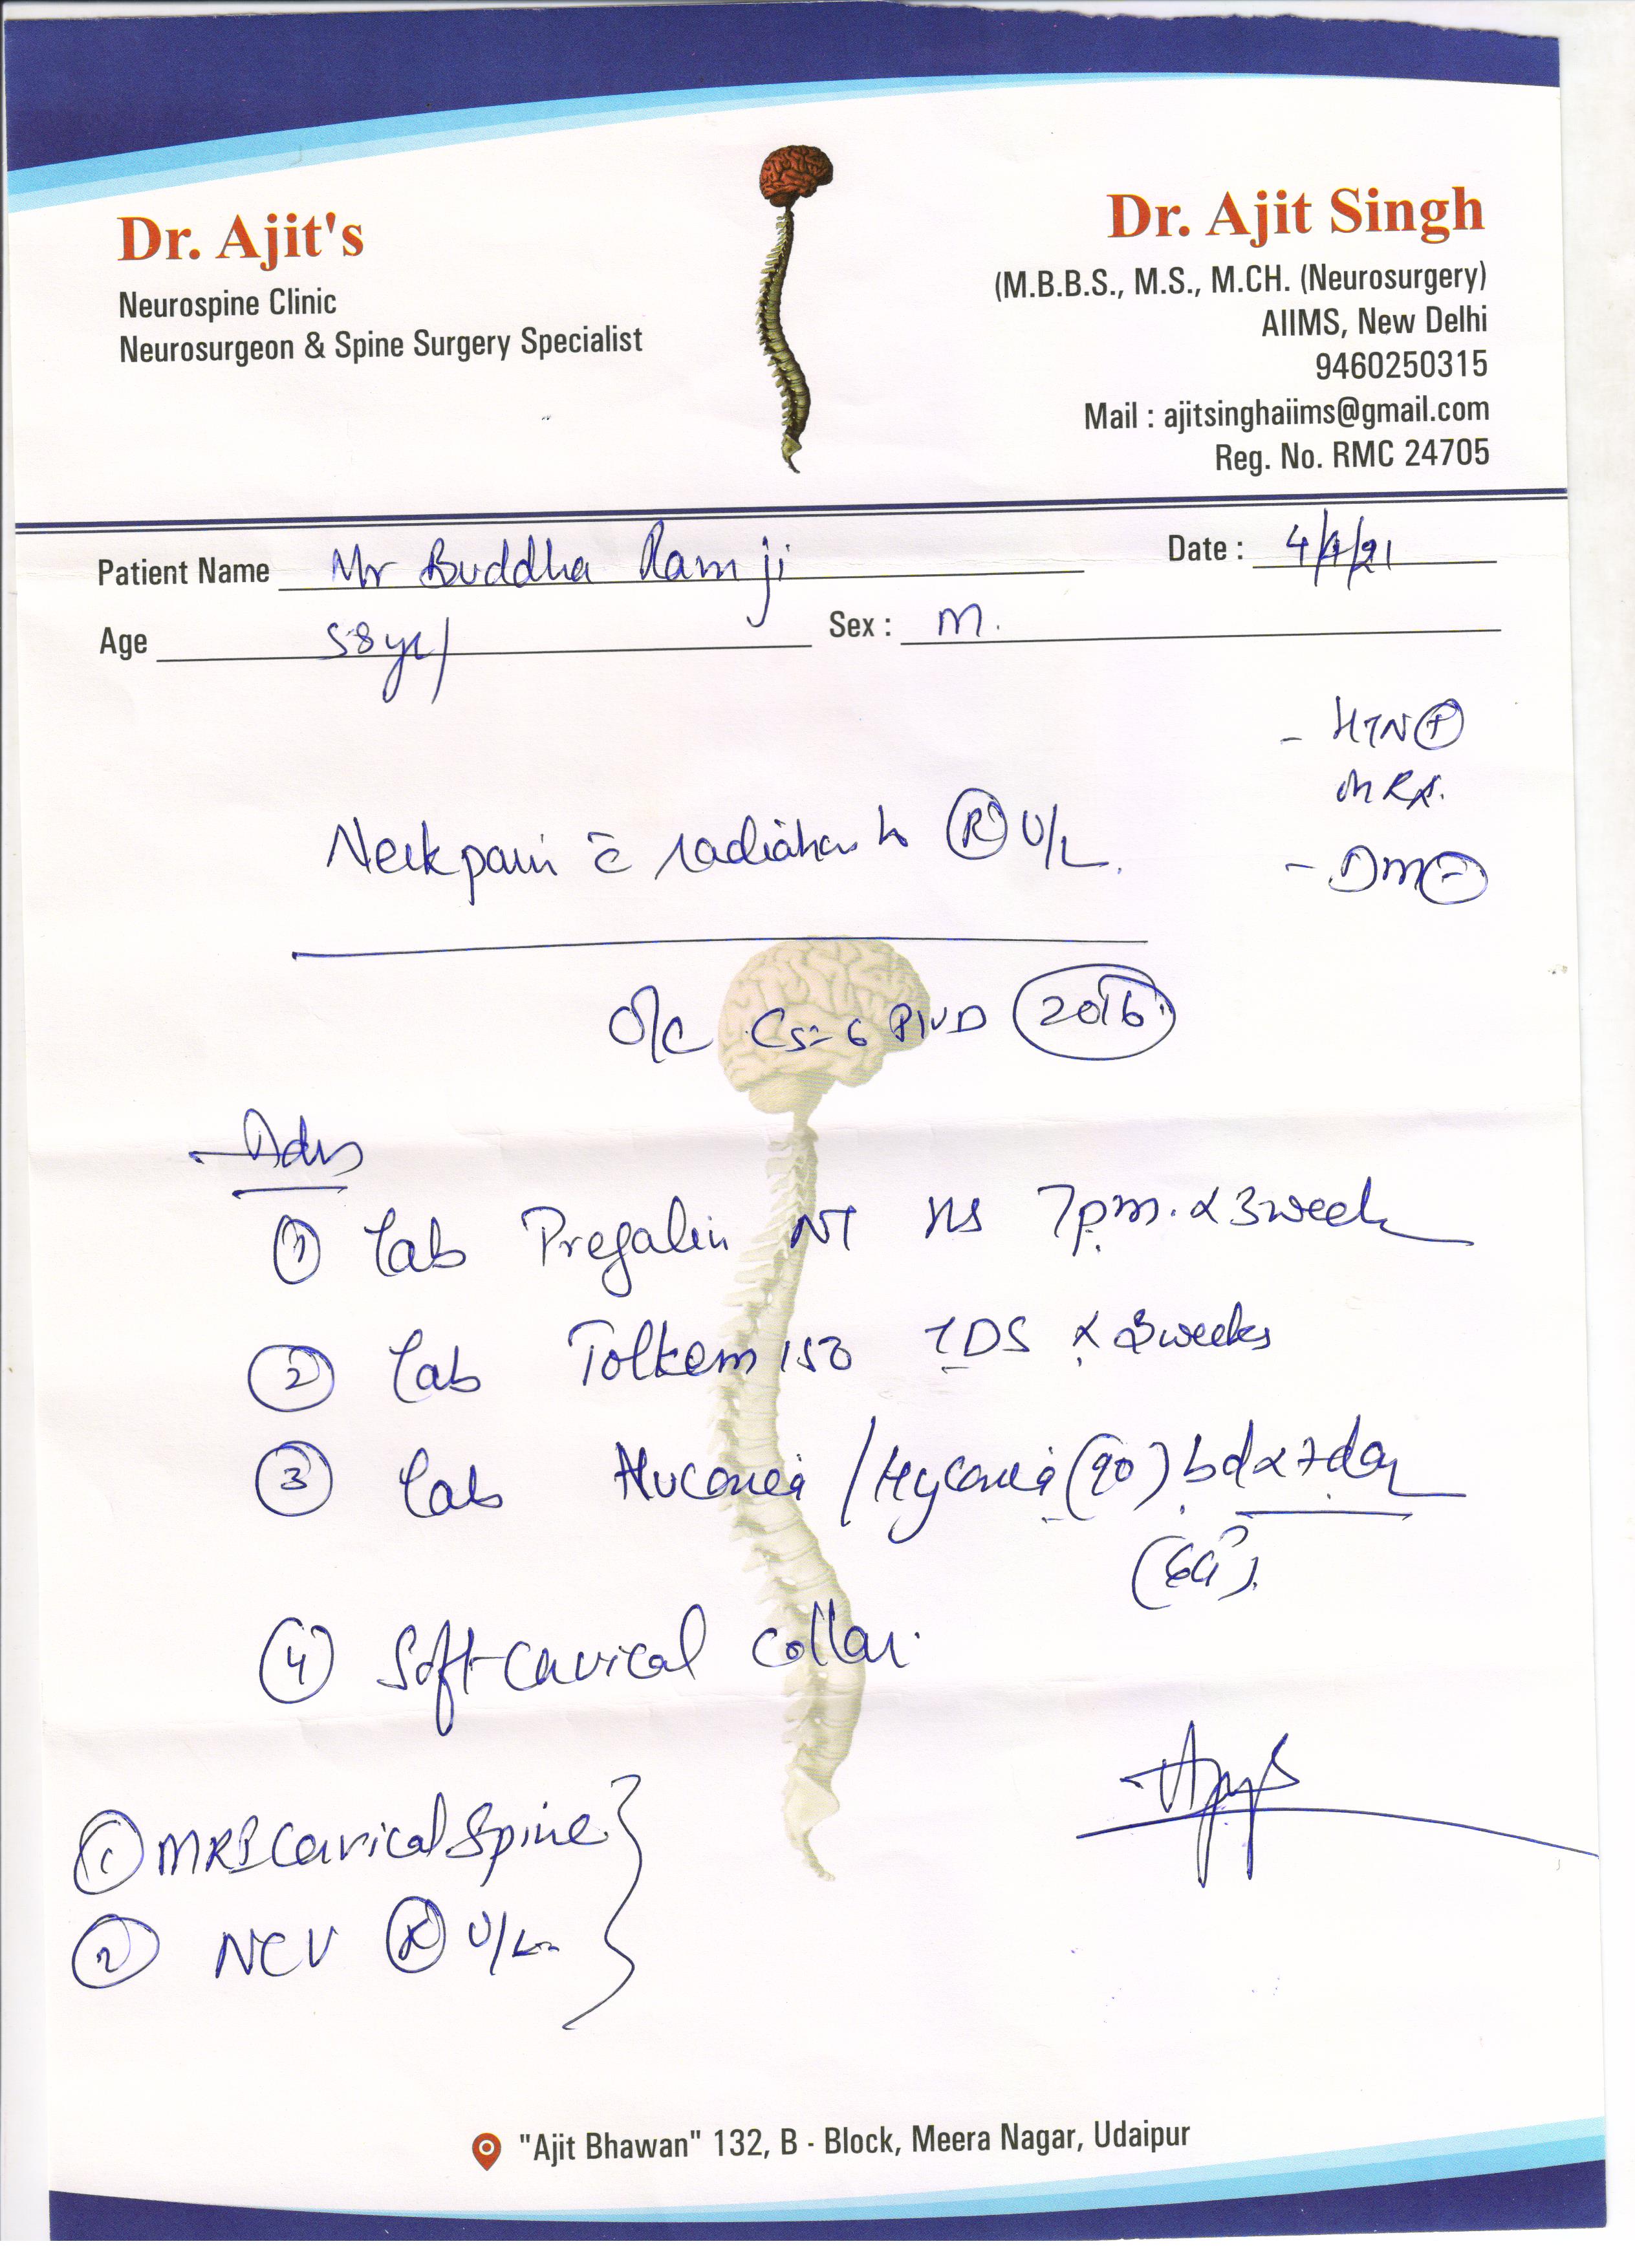 Dr. Ajit's
Neurospine Clinic
Neurosurgeon & Spine Surgery Specialist
Dr. Ajit Singh
(M.B.B.S., M.S., M.CH. (Neurosurgery)
AIIMS, New Delhi
9460250315
Mail : ajitsinghaiims@gmail.com
Reg. No. RMC 24705
Patient Name Mr Buddha Ram ji
Date : 4/4/21
Age 58 yr/
Sex : M.
- HTN (+)
on Rx.
- DM (-)
Neck pain c̄ radiation to (R) U/L.
O/C C5-6 PIVD (2016)
Adv
(1) Tab Pregalin NT HS 7pm. x 3 week
(2) Tab Tolkem 150 TDS x 3 weeks
(3) Tab / (90) bd x 7 day
(4) Soft cervical collar.
(1) MRI Cervical Spine
(2) NCV (R) U/L
"Ajit Bhawan" 132, B - Block, Meera Nagar, Udaipur